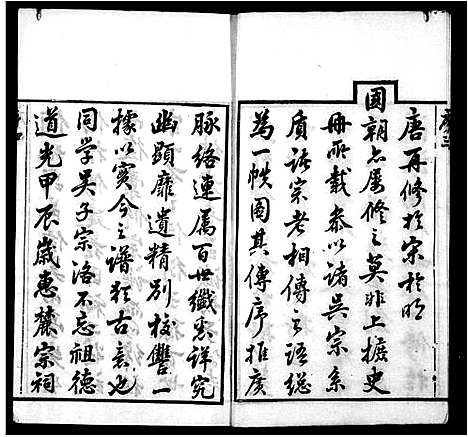 唐再修於宋於明
國朝亦屢修之莫非上摭史
冊所載叅以諸吳宗系
質語宗老相傳之語總
為一帙圖其傳序推廣
脉絡連属百世纖悉詳究
幽顯靡遺精別校讐一
據以實今之譜猶古意也
同学吴子宗洛不忘祖德
道光甲辰歲惠麓宗祠